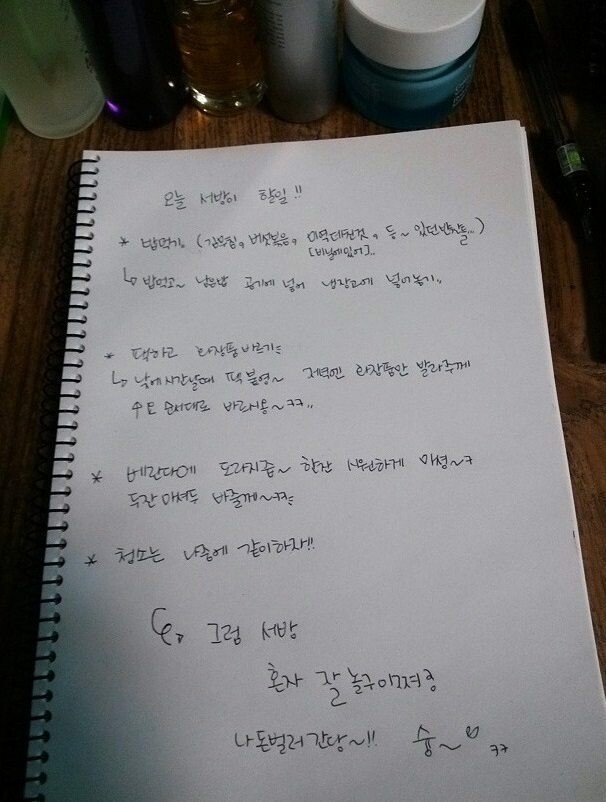 오늘 서방이 할일!!
* 밥먹기 (김무침, 버섯볶음, 미역데친것, 등~ 있던반찬들...)
[비닐에있어]..
↳ 밥먹고~ 남은밥 공기에 넣어 냉장고에 넣어놓기..
* 팩하고 화장품바르기:
↳ 낮에시간날때 팩 붙영~ 저녁엔 화장품만 발라주께
순서대로 바르시용~ㅋㅋ..
* 베란다에 도라지즙~ 한잔 시원하게 마셩~ㅋ
두잔 마셔두 봐줄께~ㅋㅋ:
* 청소는 나중에 같이하자!!
그럼 서방
혼자 잘 놀구이쪄용
나 돈벌러 간당~!! 슝~ ㅋㅋ